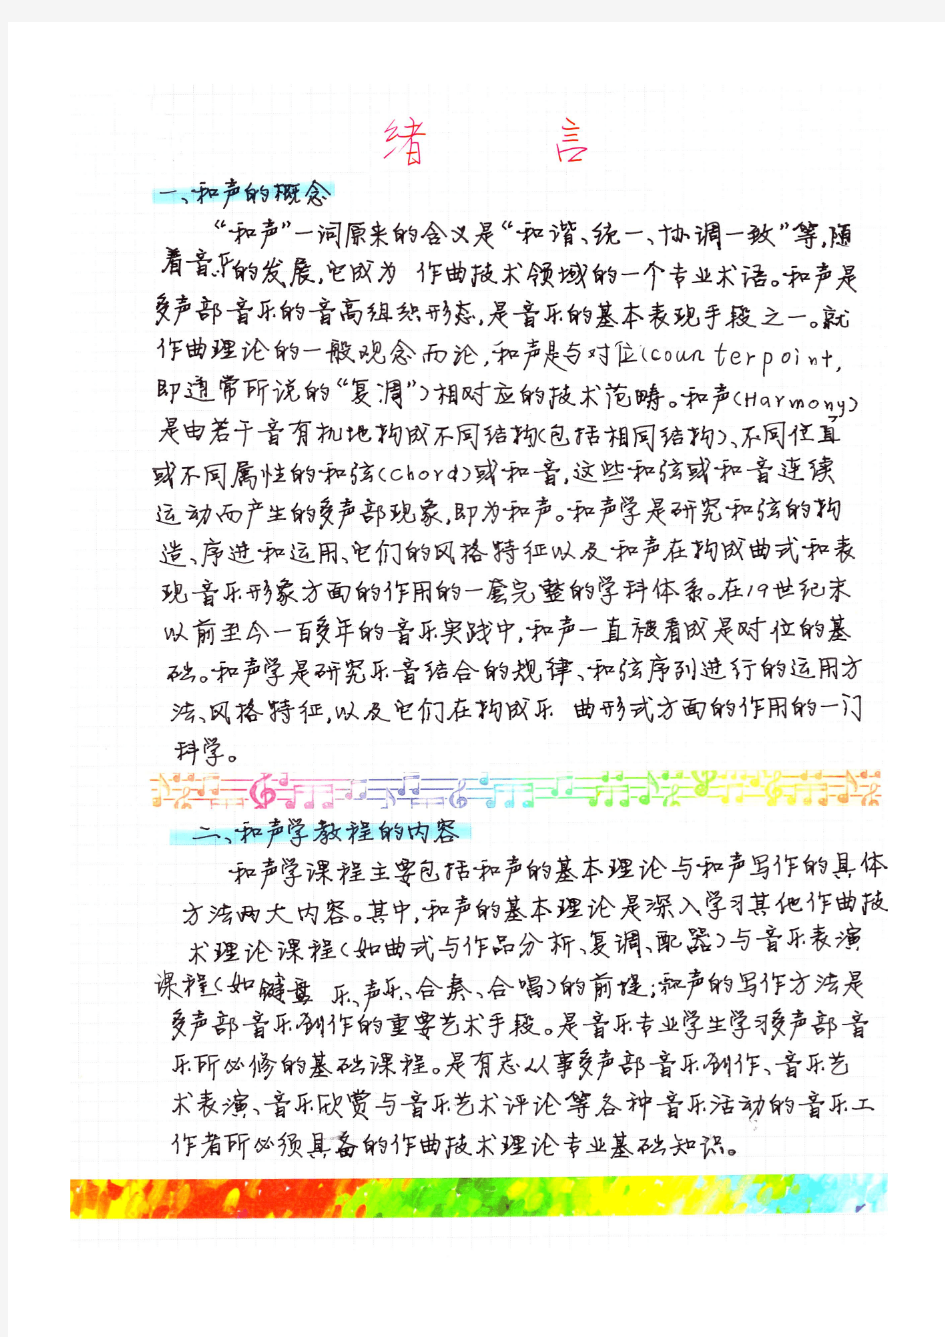 绪 言
一、和声的概念
“和声”一词原来的含义是“和谐、统一、协调一致”等,随
着音乐的发展,它成为 作曲技术领域的一个专业术语。和声是
多声部音乐的音高组织形态,是音乐的基本表现手段之一。就
作曲理论的一般观念而论,和声是与对位(counterpoint,
即通常所说的“复调”)相对应的技术范畴。和声(Harmony)
是由若干音有机地构成不同结构(包括相同结构)、不同位置
或不同属性的和弦(chord)或和音,这些和弦或和音连续
运动而产生的多声部现象,即为和声。和声学是研究和弦的构
造、序进和运用、它们的风格特征以及和声在构成曲式和表
现音乐形象方面的作用的一套完整的学科体系。在19世纪末
以前至今一百多年的音乐实践中,和声一直被看成是对位的基
础。和声学是研究乐音结合的规律、和弦序列进行的运用方
法、风格特征,以及它们在构成乐 曲形式方面的作用的一门
科学。
二、和声学教程的内容
和声学课程主要包括和声的基本理论与和声写作的具体
方法两大内容。其中,和声的基本理论是深入学习其他作曲技
术理论课程(如曲式与作品分析、复调、配器)与音乐表演
课程(如键盘 乐、声乐、合奏、合唱)的前提;和声的写作方法是
多声部音乐创作的重要艺术手段。是音乐专业学生学习多声部音
乐所必修的基础课程。是有志从事多声部音乐创作、音乐艺
术表演、音乐欣赏与音乐艺术评论等各种音乐活动的音乐工
作者所必须具备的作曲技术理论专业基础知识。